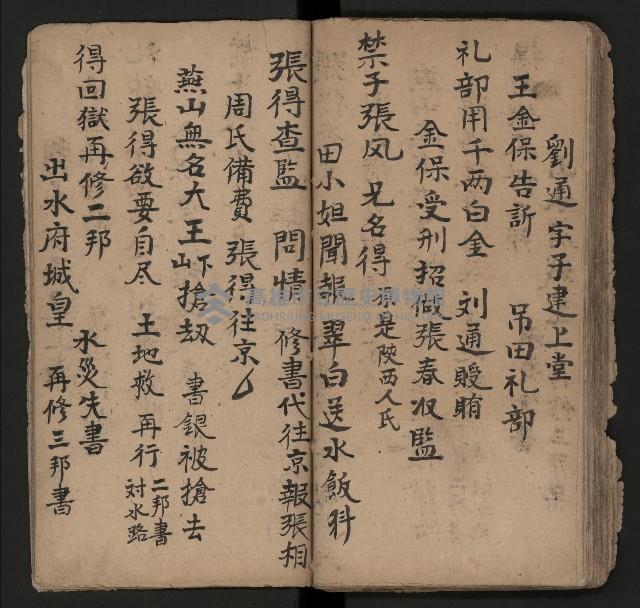 劉通字子建上堂
王金保告訴　吊田礼部
礼部用千两白金　刘通贁賄
金保受刑招假張春収監
禁子張凤　兄名得　原是陕西人氏
田小妲聞報　翠白送水飯料
張得查監　問情　修書代往京報張相
周氏備費　張得往京
燕山無名大王山下搶刼　書銀被搶去
張得欲要自尽　土地救　再行　二邦書　対水路
得回獄再修二邦　水災失書
出水府城皇　再修三邦書
高雄市立歷史博物館
KAOHSIUNG MUSEUM OF HISTORY